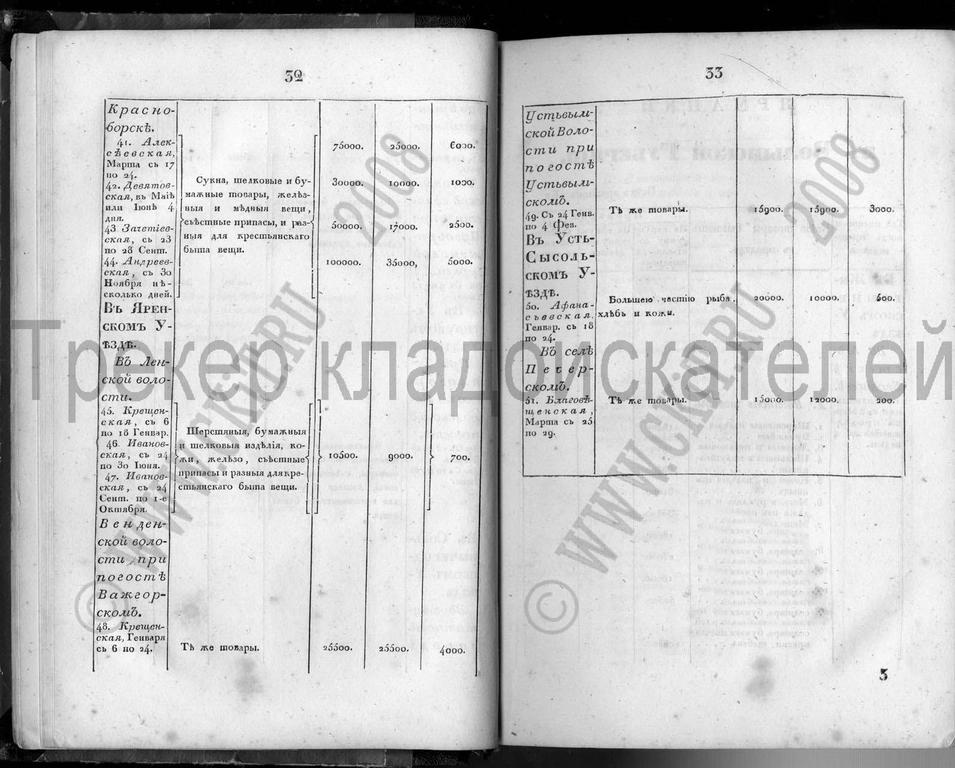 32
Красно-
борскѣ.
41. Алек-
сѣевская,
Марта съ 17
по 24.
42. Девятов-
ская, въ Маѣ
или Іюнѣ 4
дня.
43 Загетіев-
ская, съ 23
по 28 Сент.
44. Андреев-
ская, съ 30
Ноября нѣ-
сколько дней.
Сукна, шелковые и бу-
мажные товары, желѣз-
ныя и мѣдныя вещи,
съѣстные припасы, и раз-
ныя для крестьянскаго
быта вещи.
75000. 25000. 6000.
30000. 10000. 1000.
50000. 17000. 2500.
100000. 35000, 5000.
Въ Ярен-
скомъ У-
ѣздѣ.
Въ Лен-
ской воло-
сти.
45. Крещен-
ская, съ 6
по 18 Генвар.
46. Ивановс-
кая, съ 24
по 30 Іюня.
47. Ивановс-
кая, съ 24
Сент. по 1-е
Октября.
Шерстяныя, бумажныя
и шелковыя издѣлія, ко-
жи, желѣзо, съѣстные
припасы и разныя для кре-
стьянскаго быта вещи.
10500. 9000. 700.
Венден-
ской воло-
сти, при
погостѣ
Важгор-
скомъ.
48. Крещен-
ская, Генваря
съ 6 по 24.
Тѣ же товары. 25500. 25500. 4000.
33
Устьвым-
ской Воло-
сти при
погостѣ
Устьвым-
скомъ.
49. Съ 24 Генв.
по 4 Фев.
Тѣ же товары. 15900. 15900. 3000.
Въ Усть-
Сысоль-
скомъ У-
ѣздѣ.
50. Афана-
сьевская,
Генвар. съ 18
по 24.
Большею частію рыба,
хлѣбъ и кожи.
20000. 10000. 500.
Въ селѣ
Печер-
скомъ.
51. Благовѣ-
щенская,
Марта съ 25
по 29.
Тѣ же товары. 15000. 12000. 200.
3
Трекер кладоискателей
© WWW.CKB.RU 2008
© WWW.CKB.RU 2008